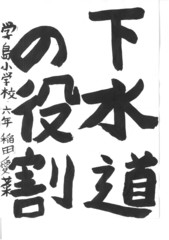 下水道
の役割
学島小学校 六年 稲田愛菜